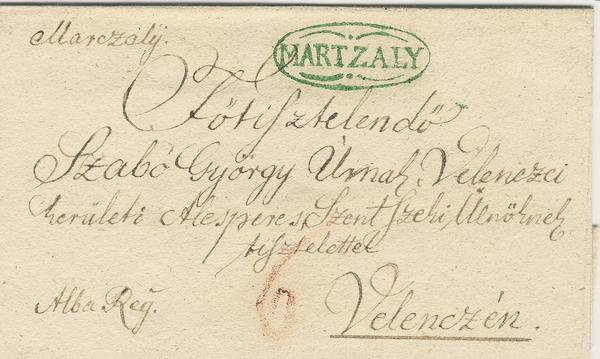 Marczaly.
MARTZALY
Főtisztelendő
Szabó György Úrnak, Velenczei
kerületi Alesperes, Szent Széki Ülnöknek
tisztelettel
6
Alba Reg.
Velenczén.